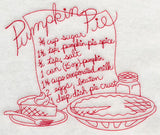 Pumpkin Pie
¾ cup sugar
½ tsp. pumpkin pie spice
½ tsp. salt
1 can (15oz) pumpkin
1¼ cups evaporated milk
2 eggs, beaten
1 deep dish pie crust